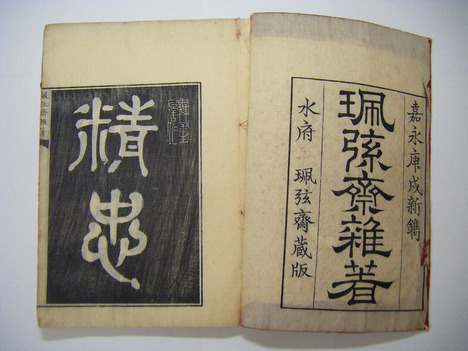 嘉永庚戌新鐫
珮弦齋雜著
水府 珮弦齋蔵版
精忠